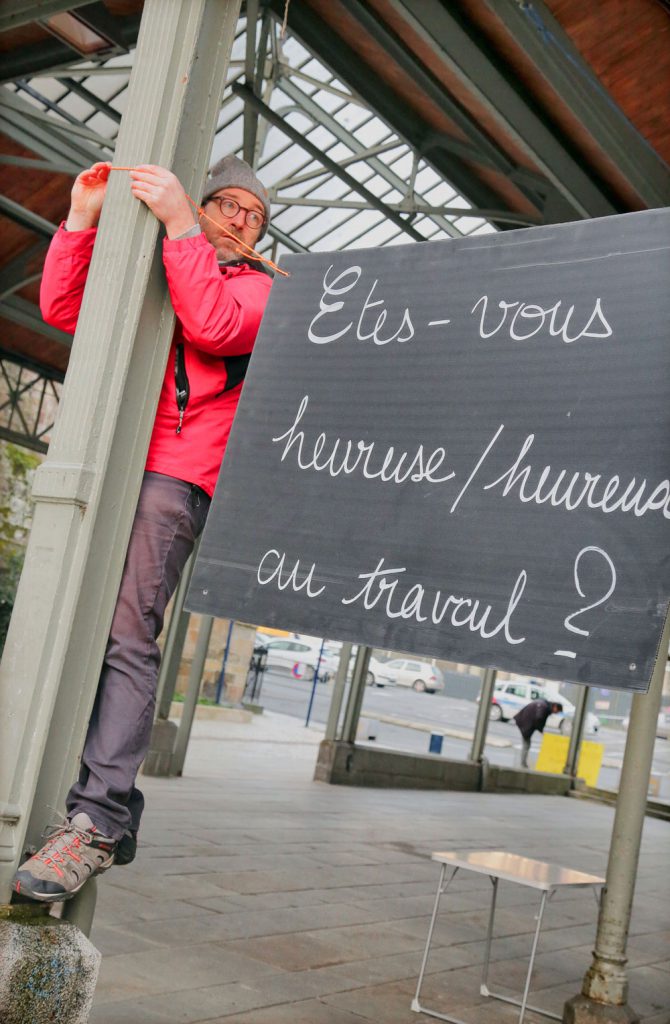 Etes-vous
heureuse/heureux
au travail ?